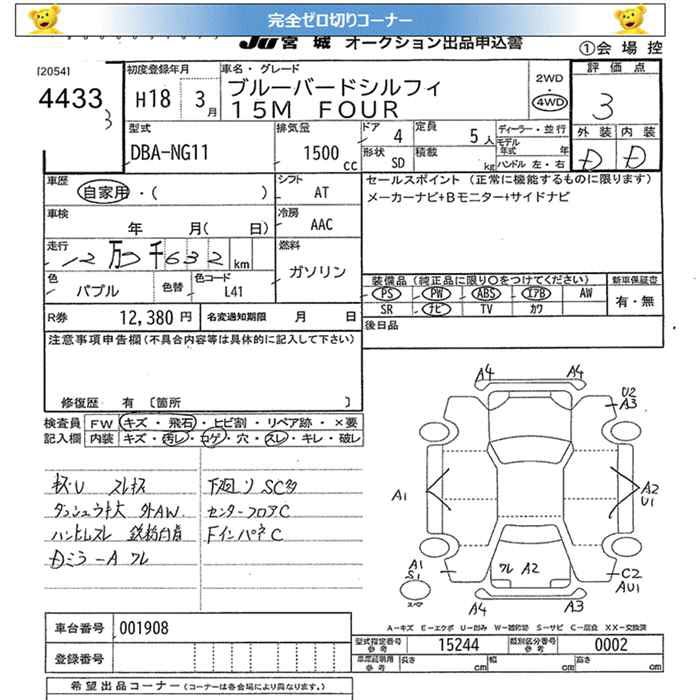 完全ゼロ切りコーナー
JU宮城 オークション出品申込書
①会場控
[2054]
4433
3
初度登録年月
H18 3月
車名・グレード
ブルーバードシルフィ
15M FOUR
2WD
・
4WD
評価点
3
外装 内装
D D
型式
DBA-NG11
排気量
1500cc
ドア 4
定員 5人
形状 SD
積載 kg
ディーラー・並行
モデル年式 年
ハンドル 左・右
車歴
自家用・( )
シフト
AT
セールスポイント (正常に機能するものに限ります)
メーカーナビ+Bモニター+サイドナビ
車検
年 月( 日)
冷房
AAC
走行
12万 千632km
燃料
ガソリン
色
パブル
色替
色コード
L41
装備品(純正品に限り○をつけてください)
新車保証書
PS PW ABS エアB AW
SR ナビ TV カワ
有・無
R券 12,380円
名変通知期限 月 日
後日品
注意事項申告欄(不具合内容等は具体的に記入して下さい)
修復歴 有 〔箇所 〕
検査員記入欄
FW キズ・飛石・ヒビ割・リペア跡・×要
内装 キズ・汚レ・コゲ・穴・スレ・キレ・破レ
下廻リ SC多
センターフロアC
FインパネC
外AW
ハンドルスレ
Dミラー A ワレ
A4 A4
U2
A3
A1
A2
U1
A1
S1
スペア
ワレ A2
C2
AU1
A4 A3
A-キズ E-エクボ U-凹み W-補修跡 S-サビ C-腐食 XX-交換済
車台番号 001908
登録番号
型式指定番号 参考 15244
類別区分番号 参考 0002
車庫証明用 参考 長さ cm 幅 cm 高さ cm
希望出品コーナー(コーナーは各会場により異なります。)